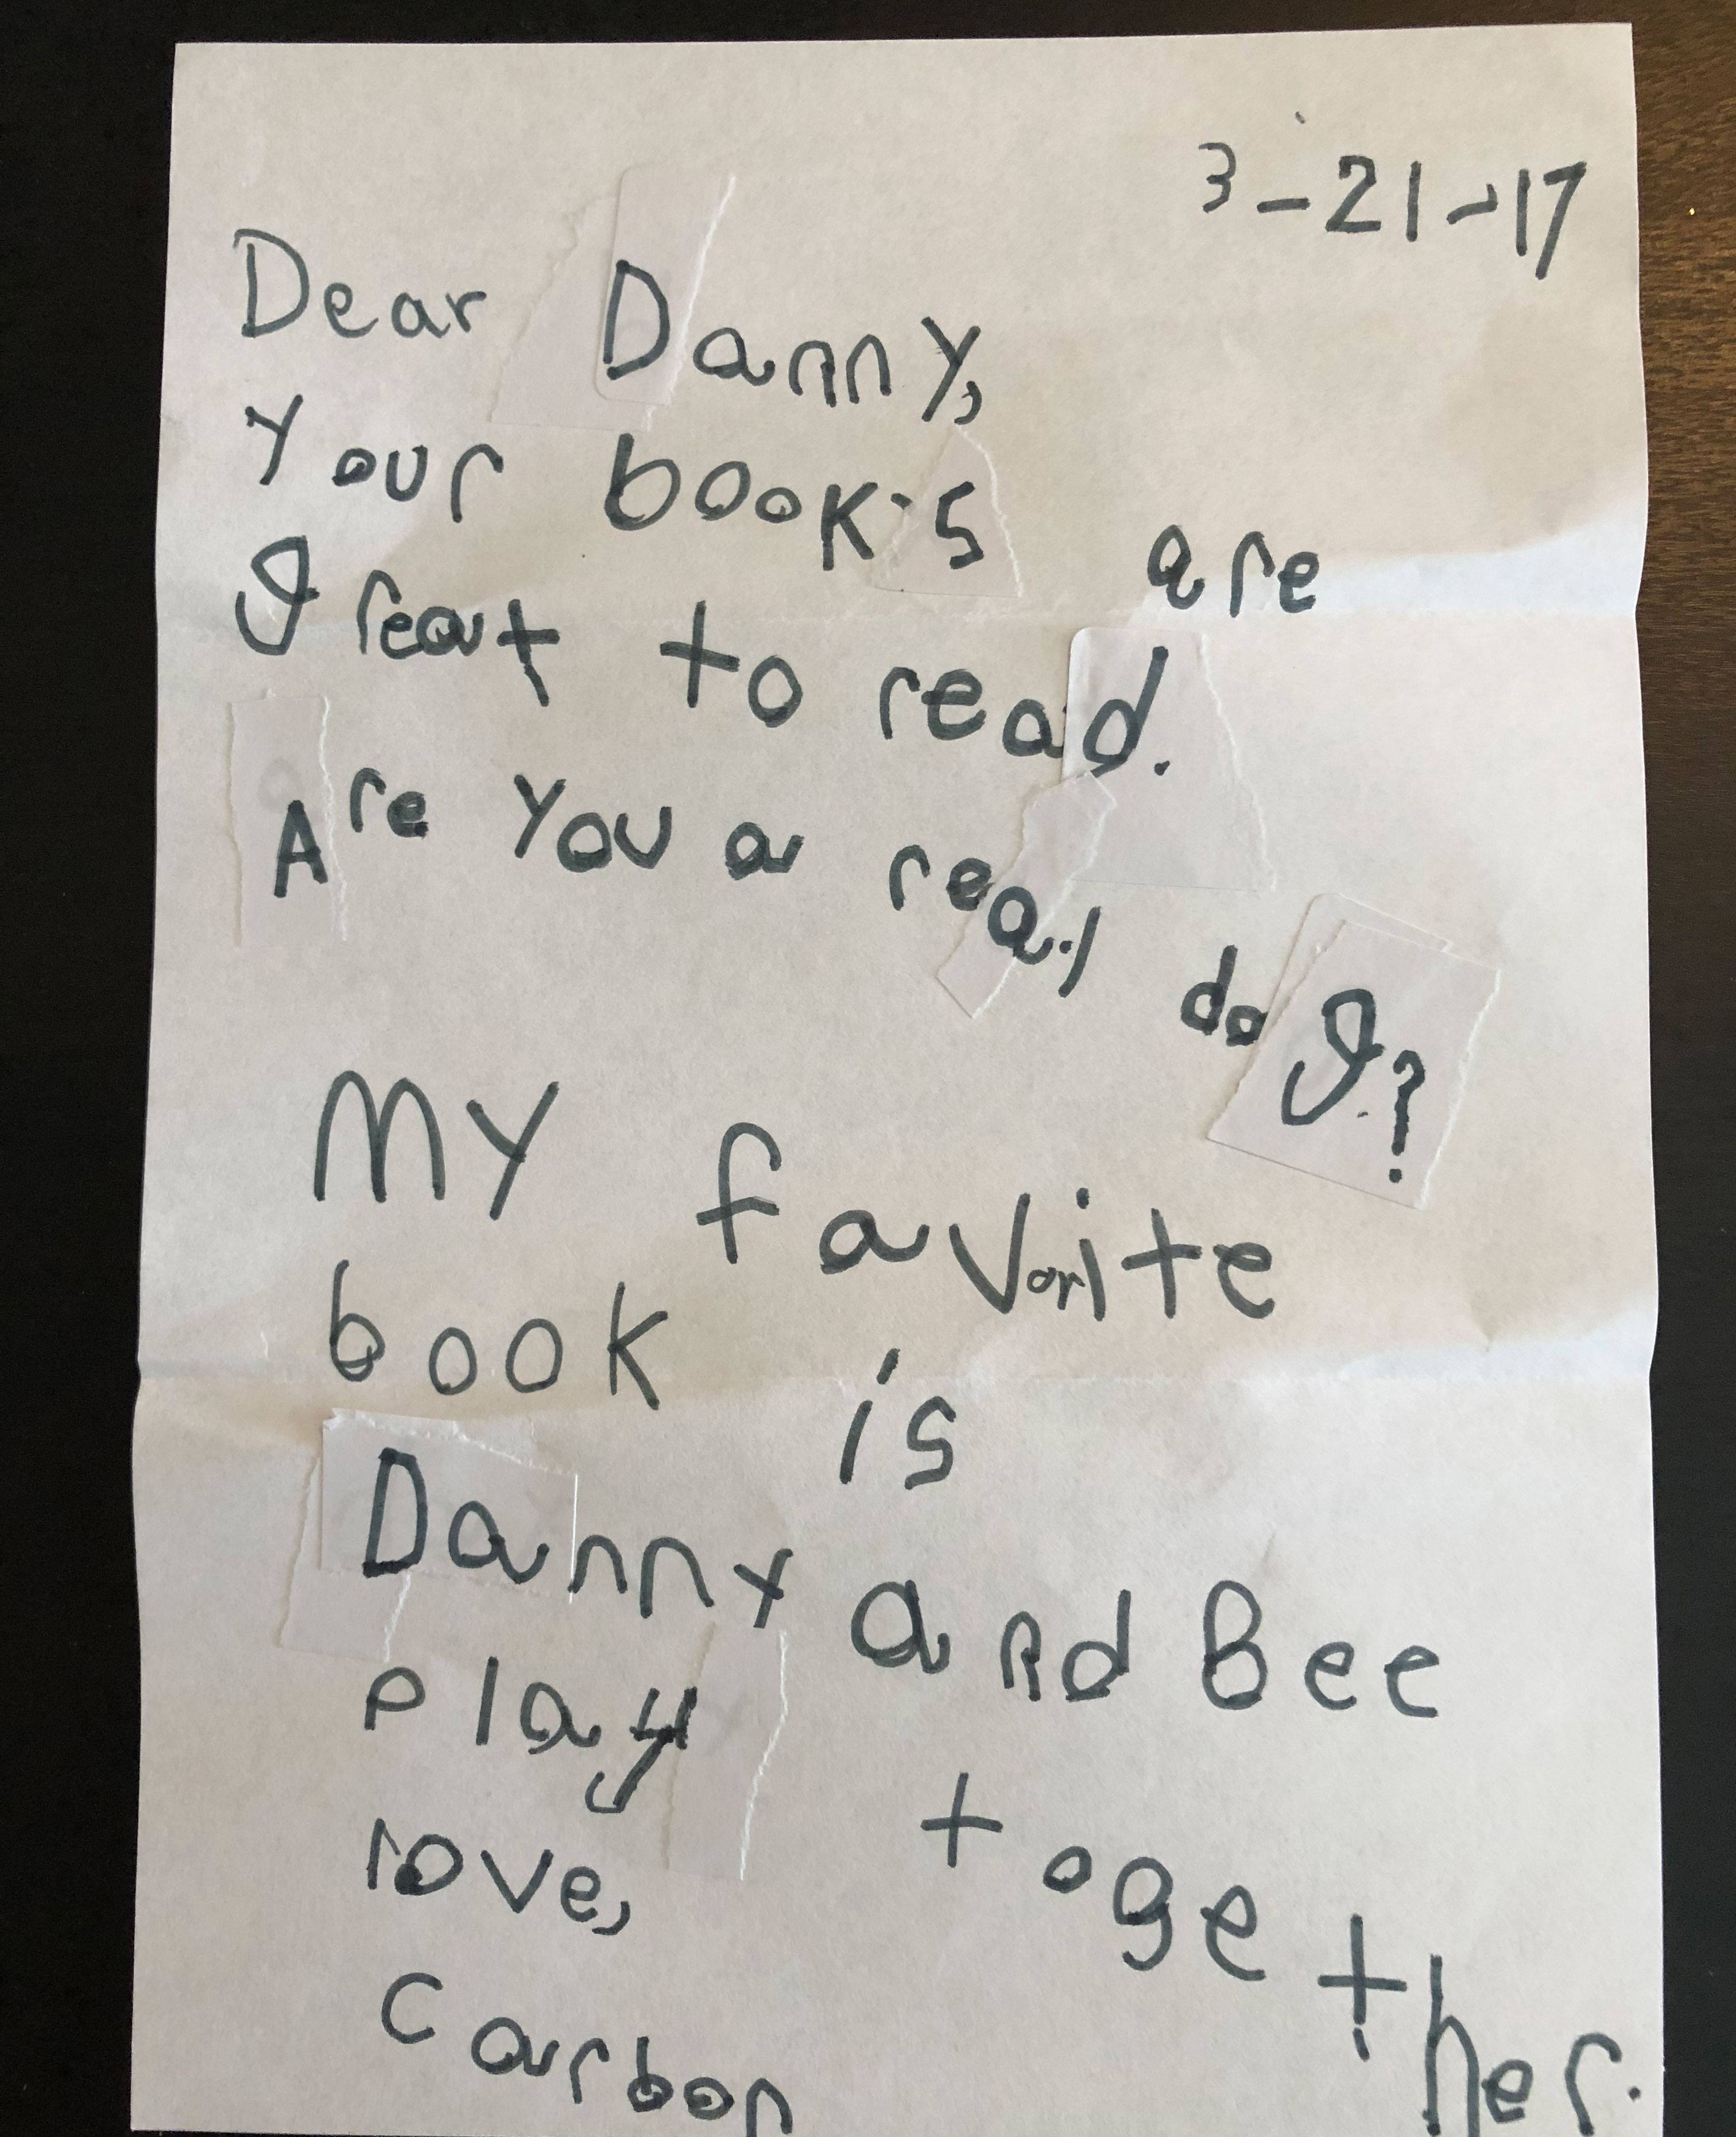 3-21-17
Dear Danny,
Your books are
great to read.
Are you a real dog?
My favorite
book is
Danny and Bee
play together.
love,
Carbon